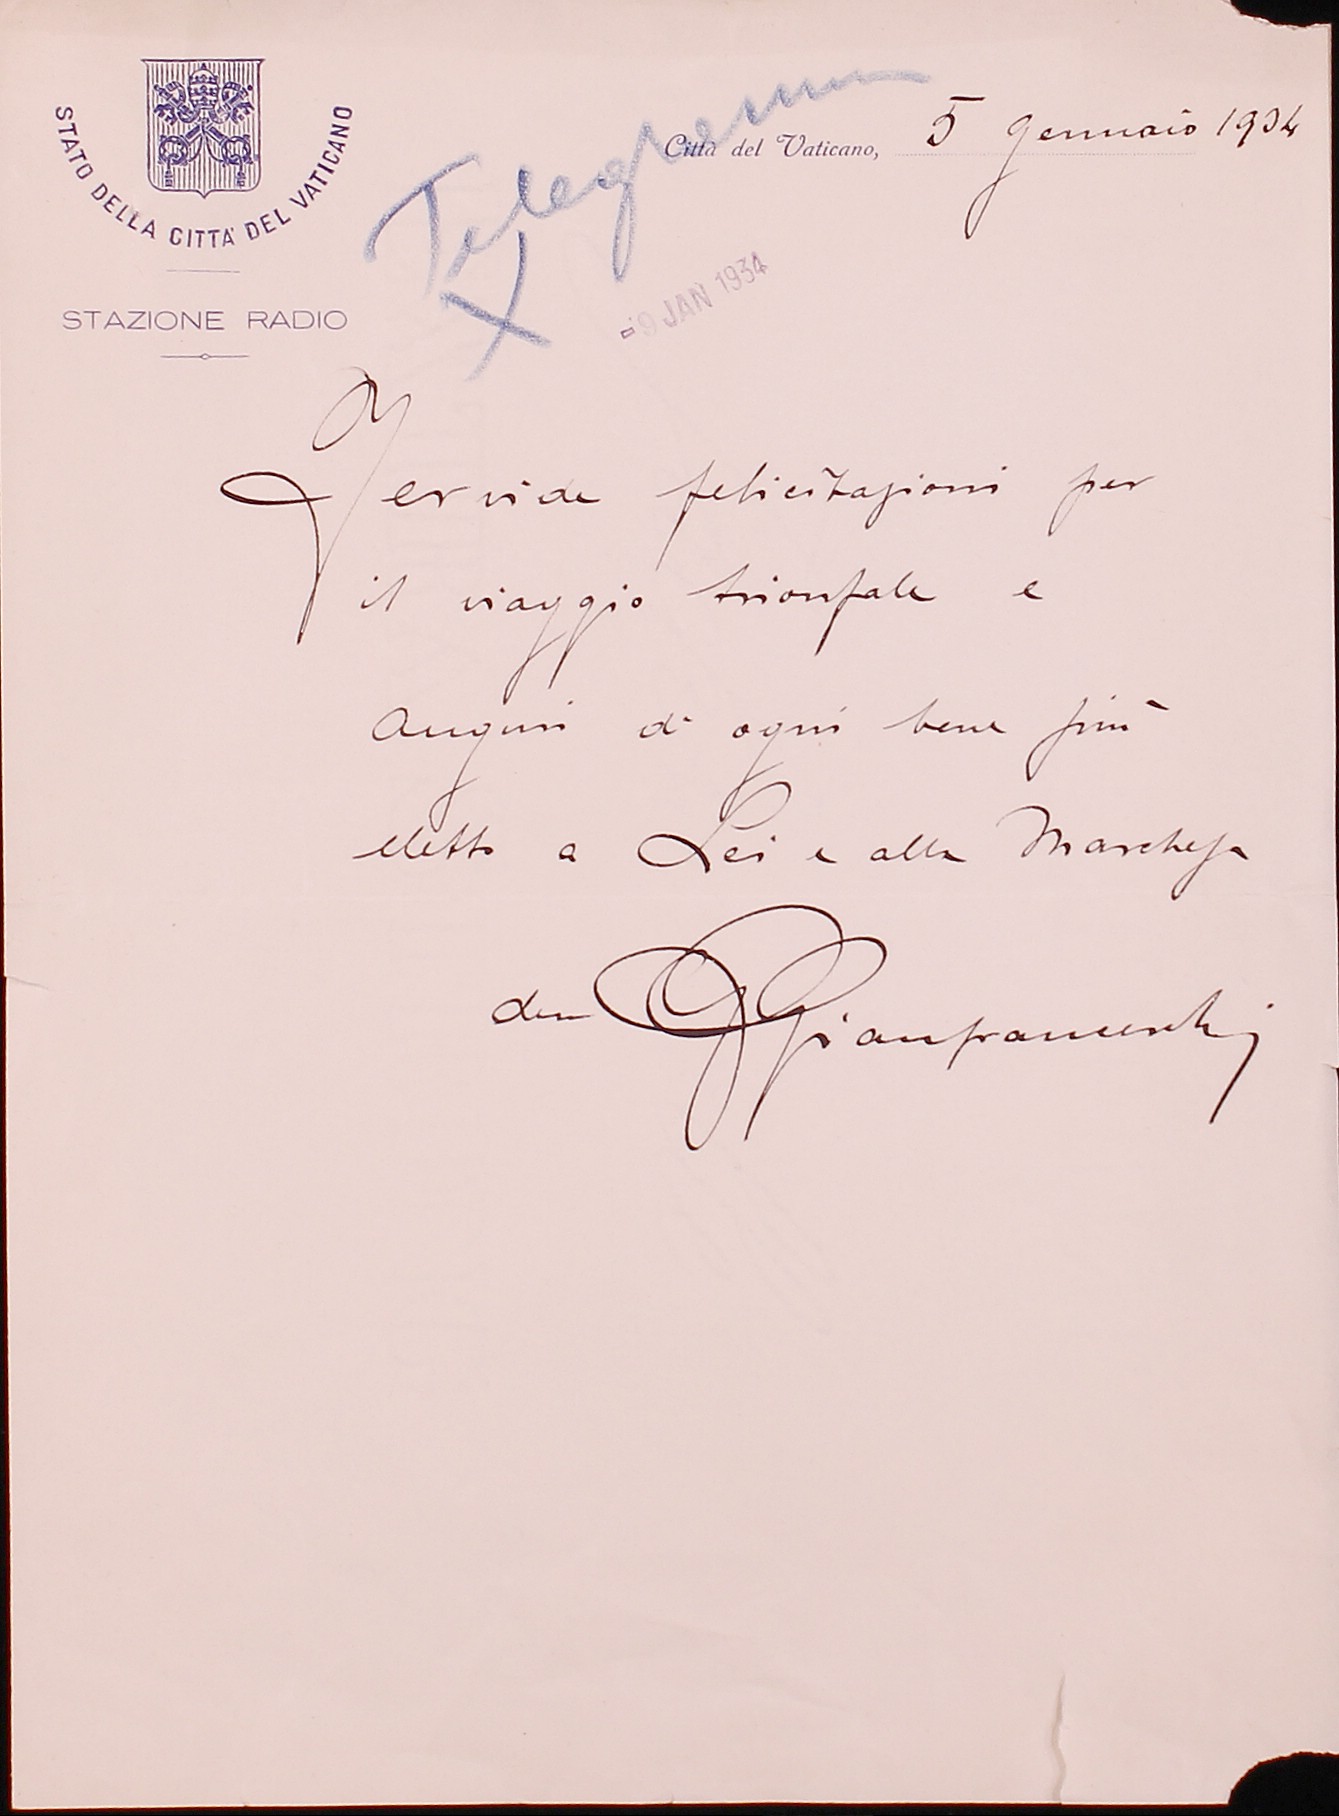 STATO DELLA CITTA' DEL VATICANO
STAZIONE RADIO
Telegramma
X
Città del Vaticano, 5 Gennaio 1934
-9 JAN 1934
Fervide felicitazioni per
il viaggio trionfale e
auguri di ogni bene più
eletto a Lei e alla Marchesa
Gianfranceschi